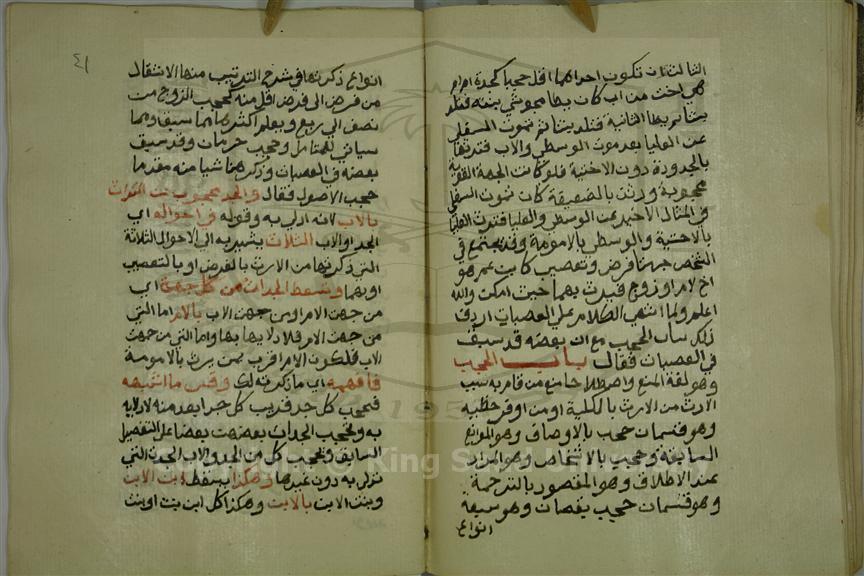 الثالث ان تكون احداهما اقل حجبا كجدة ام ام
هي اخت من اب كان يطا مجوسي بنته فتلد
بنتا ثم يطا الثانية فتلد بنتا ثم تموت السفلي
عن العليا بعد موت الوسطي والاب فترثها
بالجدودة دون الاختية فلو كانت الجهة القوية
محجوبة ورثت بالضعيفة كان تموت السفلي
في المثال الاخير عن الوسطي والعليا فترث العليا
بالاختية والوسطي بالامومة وقد يجتمع في
الشخص جهتا فرض وتعصيب كابن عم هو
اخ لام او زوج فيرث بهما حيث امكن والله
اعلم ولما انتهي الكلام علي العصبات اردف
ذلك بباب الحجب مع ان بعضه قد سبق
في العصبات فقال باب الحجب
وهو لغة المنع واصطلاحا منع من قام به سبب
الارث من الارث بالكلية او من اوفر حظيه
وهو قسمان حجب بالاوصاف وهو الموانع
السابقة وحجب بالاشخاص وهو المراد
عند الاطلاق وهو المقصود بالترجمة
وهو قسمان حجب نقصان وهو سبعة
انواع
٤١
انواع ذكرتها في شرح الترتيب منها الانتقال
من فرض الي فرض اقل منه كحجب الزوج من
نصف الي ربع ويعلم اكثرها مما سبق ومما
سياتي للمتامل وحجب حرمان وقد سبق
بعضه في العصبات وذكر هنا شيا منه مقدما
حجب الاصول فقال والجد محجوب عن الميراث
بالاب لانه ادلي به وقوله في احواله اي
الجد او الاب الثلاث يشير به الي الاحوال الثلاثة
التي ذكرتها من الارث بالفرض او بالتعصيب
او بهما وتسقط الجدات من كل جهة اي
من جهة الام او من جهة الاب بالام اما التي
من جهة الام فلادلايها بها واما التي من جهة
الاب فلكون الام اقرب من يرث بالامومة
فافهمه اي ما ذكرته لك وقس ما اشبهه
فيحجب كل جد قريب كل جد ابعد منه لادلايه
به وتحجب الجدات بعضهن بعضا علي التفصيل
السابق ويحجب كل من الجد والاب الجدة التي
تدلي به دون غيرها وهكذا يسقط ابن الابن
وبنت الابن بالابن وهكذا كل ابن ابن او بنت